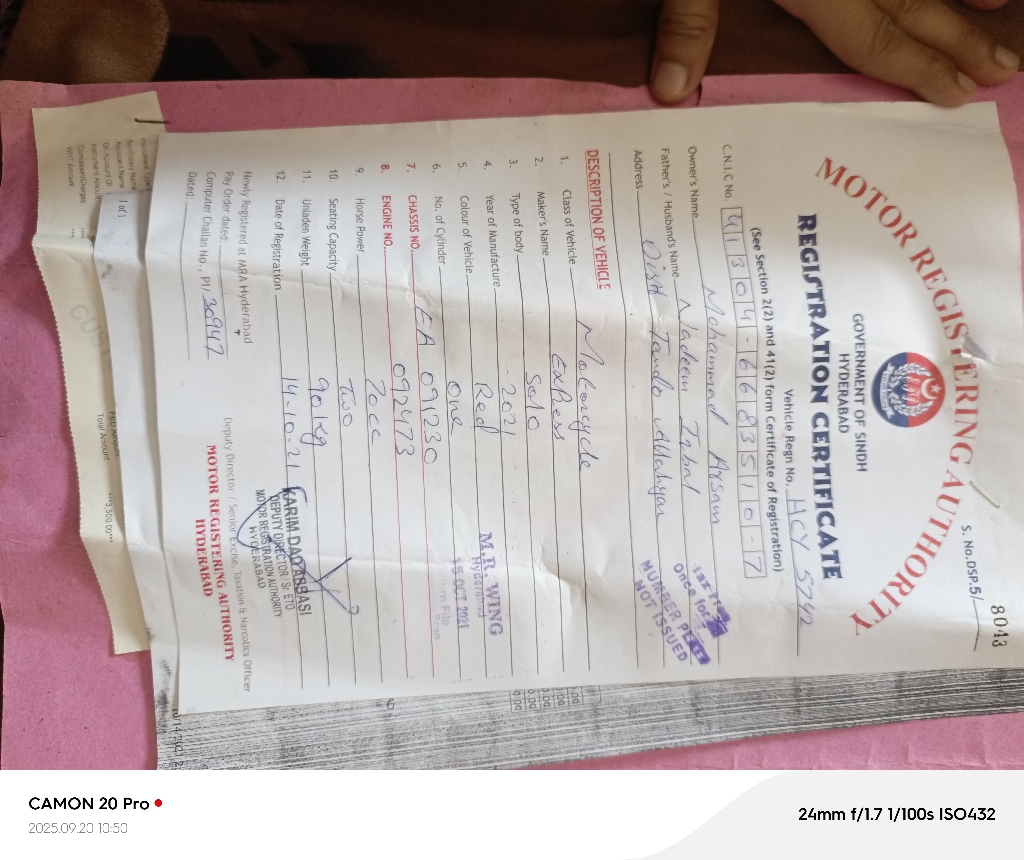 8043
S. No.DSP.5/
MOTOR REGISTERING AUTHORITY
GOVERNMENT OF SINDH
HYDERABAD
REGISTRATION CERTIFICATE
Vehicle Regn No. HCY 5742
(See Section 2(2) and 41(2) form Certificate of Registration)
C.N.I.C No. 41304-6683510-7
Owner's Name Mohammad Arsam
Father's / Husband's Name Nadeem Iqbal
Address Dist Tando Allahyar
Once for
NUMBER PLATE
NOT ISSUED
DESCRIPTION OF VEHICLE
1. Class of Vehicle Motorcycle
2. Maker's Name Express
3. Type of body Solo
4. Year of Manufacture 2021
5. Colour of Vehicle Red
6. No. of Cylinder One
7. CHASSIS NO. EA 091230
8. ENGINE NO. 092473
9. Horse Power 70cc
10. Seating Capacity Two
11. Unladen Weight 90 kg
12. Date of Registration 14-10-21
M.R. WING
Hyderabad
15 OCT 2021
KARIM DAD ABBASI
DEPUTY DIRECTOR / Sr. ETO
MOTOR REGISTRATION AUTHORITY
HYDERABAD
Newly Registered at MRA Hyderabad
Pay Order dated:
Computer Challan No., P1/ 30947
Dated:
Deputy Director / Senior Excise, Taxation & Narcotics Officer
MOTOR REGISTERING AUTHORITY
HYDERABAD
1 of 1
Total Amount
CAMON 20 Pro
2025.09.20 10:50
24mm f/1.7 1/100s ISO432